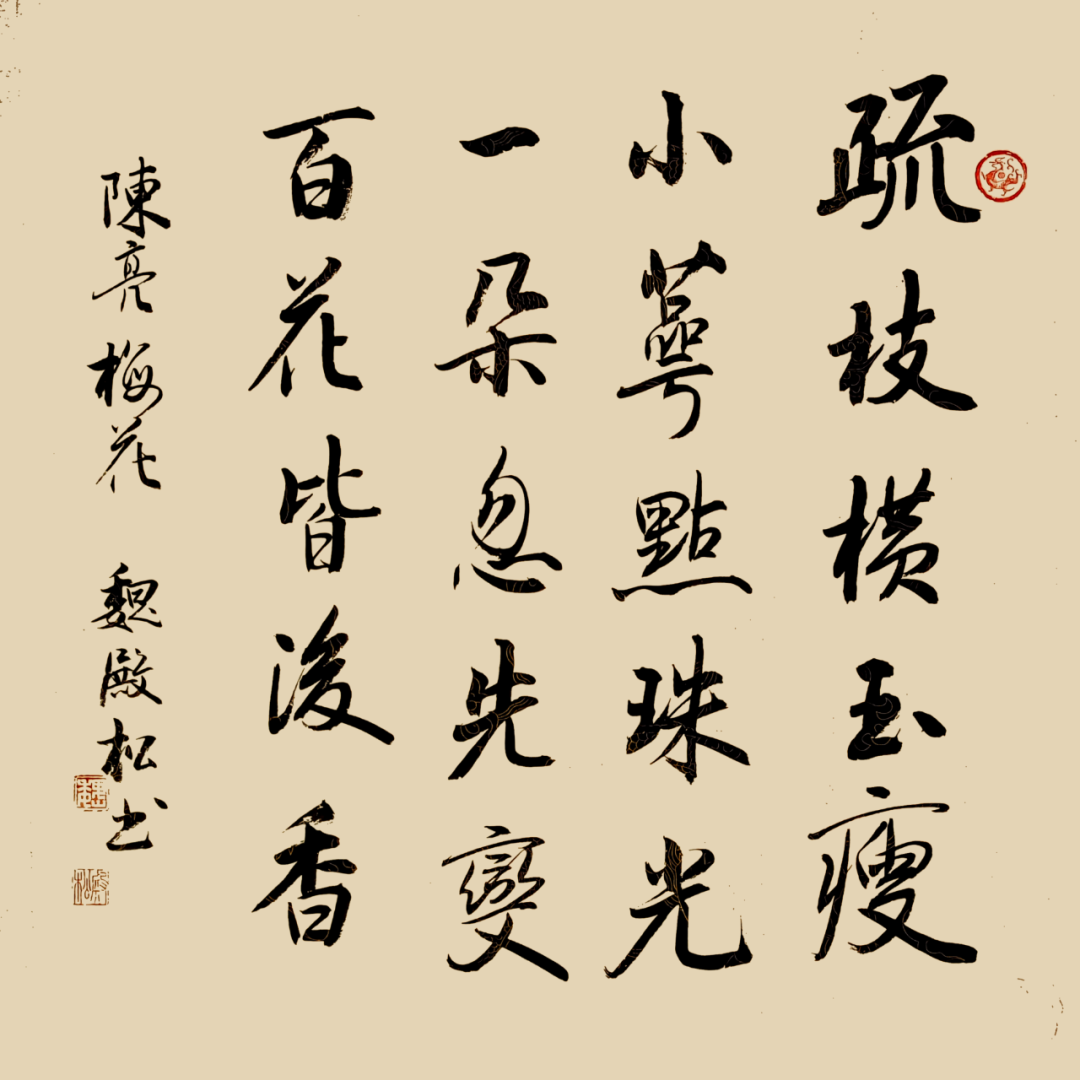 疏枝横玉瘦
小萼點珠光
一朵忽先變
百花皆後香
陳亮梅花 魏殿松书